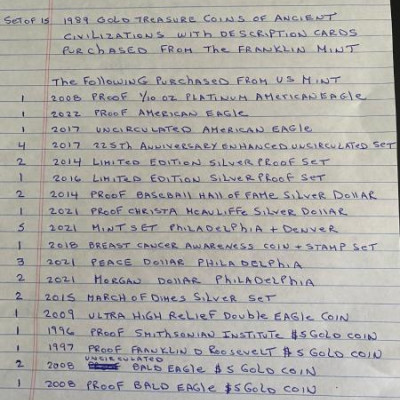 SET OF 15 1989 GOLD TREASURE COINS OF ANCIENT
CIVILIZATIONS WITH DESCRIPTION CARDS
PURCHASED FROM THE FRANKLIN MINT
THE FOLLOWING PURCHASED FROM US MINT
1 2008 PROOF 1/10 OZ PLATINUM AMERICAN EAGLE
1 2022 PROOF AMERICAN EAGLE
1 2017 UNCIRCULATED AMERICAN EAGLE
4 2017 225th ANNIVERSARY ENHANCED UNCIRCULATED SET
2 2014 LIMITED EDITION SILVER PROOF SET
1 2016 LIMITED EDITION SILVER PROOF SET
2 2014 PROOF BASEBALL HALL OF FAME SILVER DOLLAR
1 2021 PROOF CHRISTA MCAULIFFE SILVER DOLLAR
5 2021 MINT SET PHILADELPHIA + DENVER
1 2018 BREAST CANCER AWARENESS COIN + STAMP SET
3 2021 PEACE DOLLAR PHILADELPHIA
2 2021 MORGAN DOLLAR PHILADELPHIA
2 2015 MARCH OF DIMES SILVER SET
1 2009 ULTRA HIGH RELIEF DOUBLE EAGLE COIN
1 1996 PROOF SMITHSONIAN INSTITUTE $5 GOLD COIN
1 1997 PROOF FRANKLIN D ROOSEVELT $5 GOLD COIN
2 2008 UNCIRCULATED BALD EAGLE $5 GOLD COIN
1 2008 PROOF BALD EAGLE $5 GOLD COIN